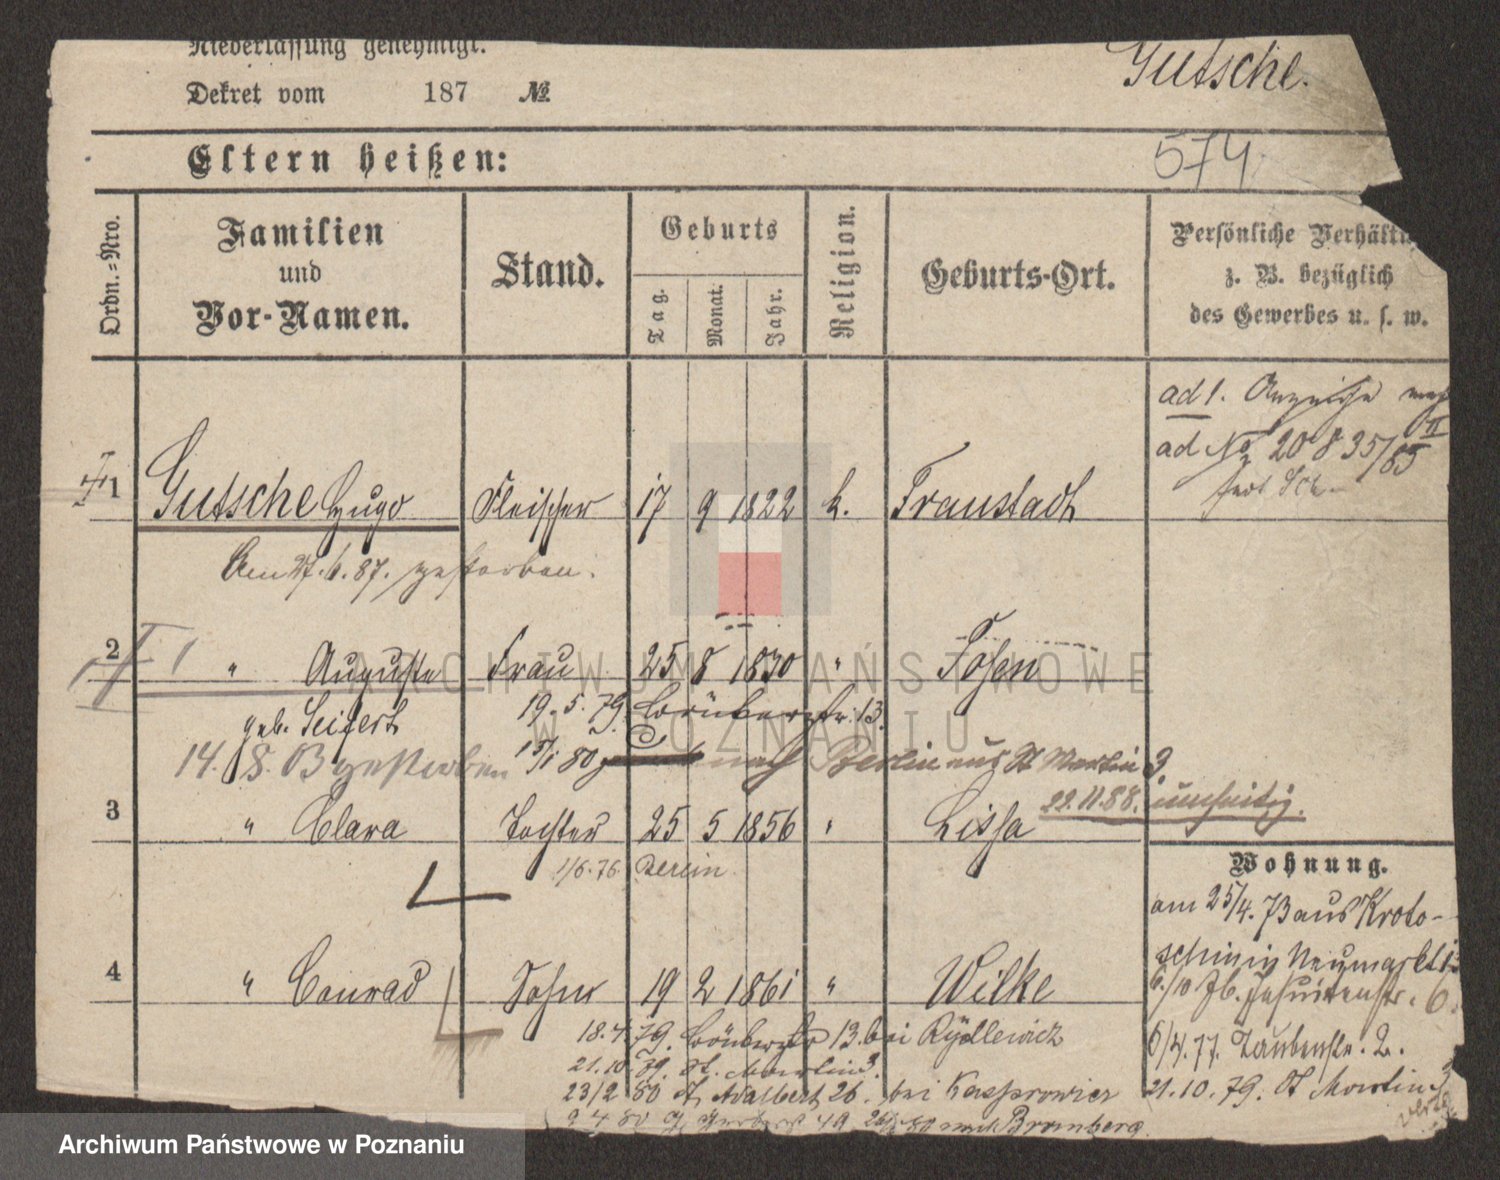 Niederlassung genehmigt.
Gutsche.
Dekret vom 187 №
574
Eltern heißen:
Ordn.=Nro.
Familien
und
Vor-Namen.
Stand.
Geburts
Tag.
Monat.
Jahr.
Religion.
Geburts-Ort.
Persönliche Verhältn
z. B. bezüglich
des Gewerbes u. s. w.
ad 1. Anzeige
ad No 20835/85 II
1 Gutsche Hugo Fleischer 17 9 1822 k. Fraustadt
Am 27. 6. 87. gestorben.
2 " Auguste Frau 25 8 1830 " Posen
geb. Seifert 19. 5. 79. 13.
14. 8. gestorben 15/1 80 nach Berlin aus St Martin 3.
22.11.88.
3 " Clara Tochter 25 5 1856 " Lissa
1/6. 76 Berlin
Wohnung.
am 25/4. 73 aus Kroto-
schin in Neumarkt
6/10 76. Jesuitenstr. 6.
6/4. 77. Taubenstr. 2.
21. 10. 79. St Martin 3
4 " Conrad Sohn 19 2 1861 " Wilke
18. 4. 79. 13. bei Rydlewicz
21. 10. 79. St. Martin 3.
23/2 80 St Adalbert 26. bei Kasprowicz
9 4 80 49 nach Bromberg.
ARCHIWUM PAŃSTWOWE
W POZNANIU
Archiwum Państwowe w Poznaniu